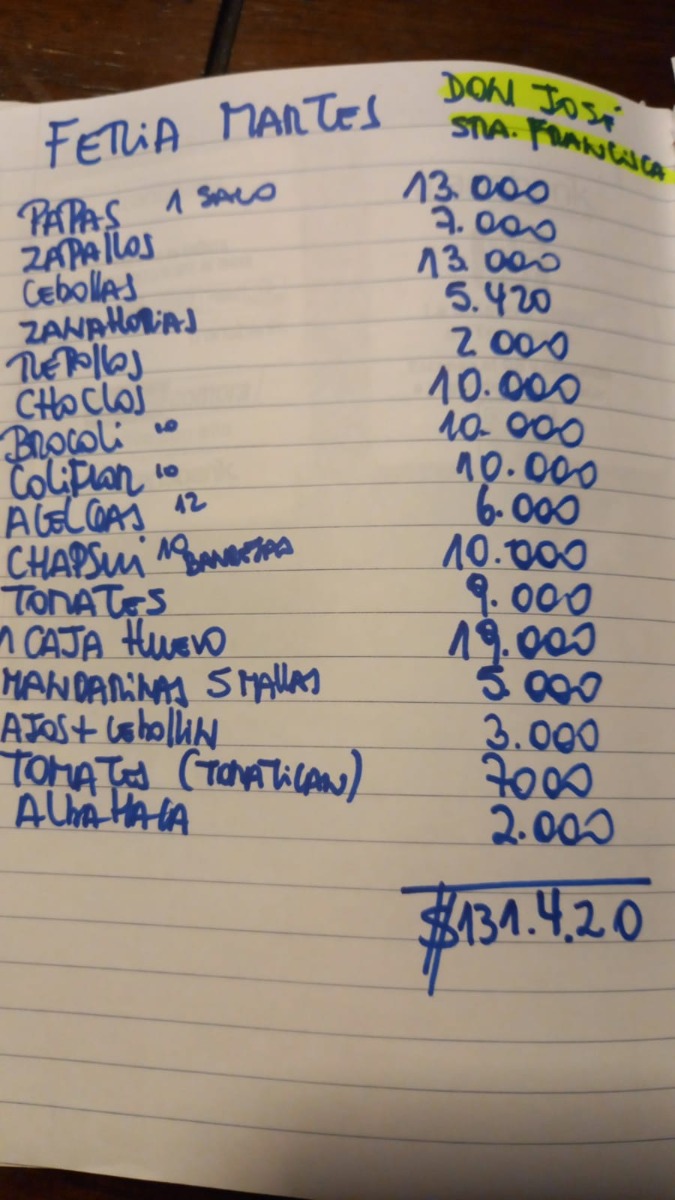 FERIA MARTES
DON JOSÉ
SRA. FRANCISCA
PAPAS 1 SACO 13.000
ZAPALLOS 7.000
CEBOLLAS 13.000
ZANAHORIAS 5.420
REPOLLOS 2000
CHOCLOS 10.000
BROCOLI 10 10.000
COLIFLOR 10 10.000
ACELGAS 12 6.000
CHAPSUI 10 BANDEJAS 10.000
TOMATES 9.000
1 CAJA HUEVO 19.000
MANDARINAS 5 MALLAS 5.000
AJOS + CEBOLLIN 3.000
TOMATES (TOMATICAN) 7000
ALBAHACA 2.000
$131.4.20